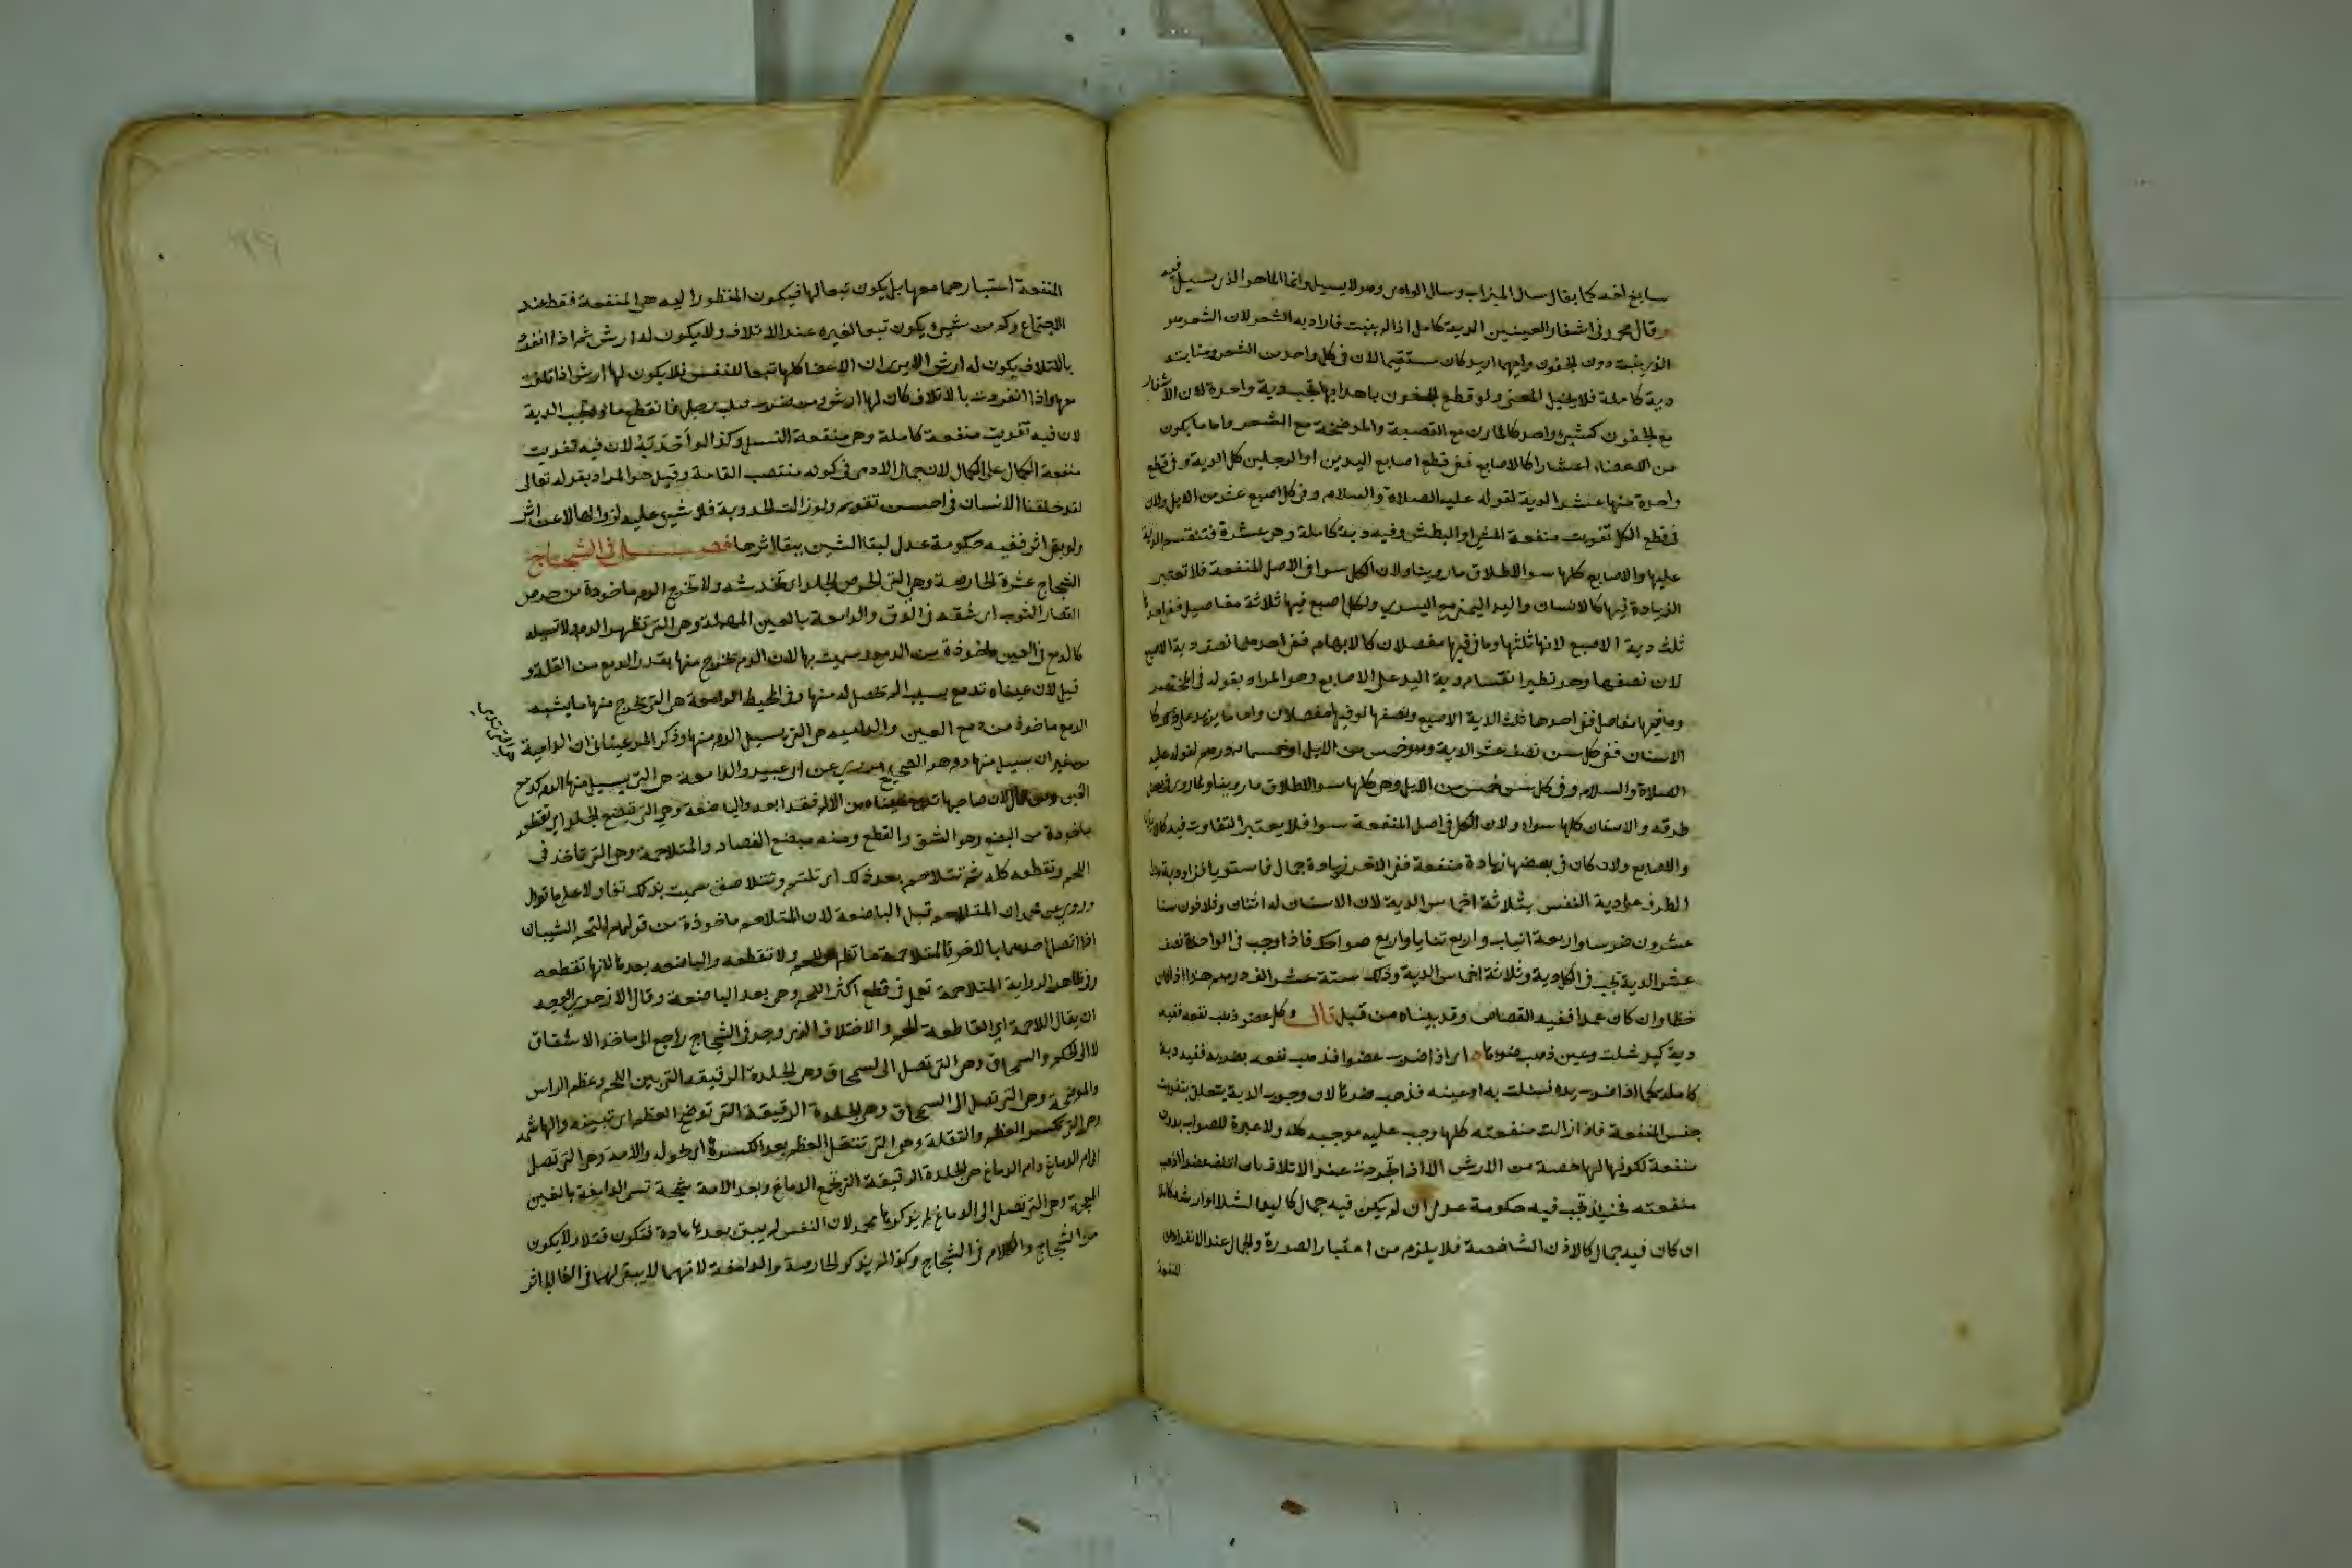 سايغ لغة كما يقال سال الميزاب وسال الوادى وهو لا يسيل وانما الماهو الذى يسيل فيه
وقال محمد وفى اشفار العينين الدية كامل اذا لم ينبت فاراد به الشعر لان الشعر هو
الذى ينبت دون الجفون وايهما اريد كان مستقيما لان فى كل واحد من الشعر ومنابته
دية كاملة فلا يختل المعنى ولو قطع الجفون باهدابها تجب دية واحدة لان الاشفار
مع الجفون كشئ واحد كالمارن مع القصبة والموضحة مع الشعر واما ما يكون
من الاعضاء اعشارا كالاصابع ففى قطع اصابع اليدين او الرجلين كل الدية وفى قطع
واحدة منها عشر الدية لقوله عليه الصلاة والسلام وفى كل اصبع عشر من الابل ولان
فى قطع الكل تفويت منفعة المشى او البطش وفيه دية كاملة وهى عشرة فتنقسم الدية
عليها والاصابع كلها سوا لاطلاق ما روينا ولان الكل سوا فى الاصل المنفعة فلا تعتبر
الزيادة فيها كالانسان واليد اليمنى مع اليسرى ولكل اصبع فيها ثلاثة مفاصيل ففى احدها
ثلث دية الاصبع لانها ثلثها وما فيها مفصلان كالابهام ففى احدهما نصف دية الاصبع
لان نصفها وهو نظير انقسام دية اليد على الاصابع وهو المراد بقوله فى المختصر
وما فيها مفاصل ففى احدها ثلث الدية الاصبع ونصفها لو فيها مفصلان واما ما يزيد على ذلك كا
الاسنان ففى كل سن نصف عشر الدية وهو خمس من الابل او خمسمائة درهم لقوله عليه
الصلاة والسلام وفى كل سن خمس من الابل وهى كلها سوا لاطلاق ما روينا ولما روى فى بعض
طرقه والاسنان كلها سواء ولان الكل فى اصل المنفعة سوا فلا يعتبر التفاوت فيه كالايدى
والاصابع ولان كان فى بعضها زيادة منفعة ففى الاخر زيادة جمال فاستويا فزاد دية هذا
الطرف على دية النفس بثلاثة اخماس الدية لان الانسان له اثنان وثلاثون سنا
عشرون ضرسا واربعة انياب واربع ثنايا واربع ضواحك فاذا وجب فى الواحدة نصف
عشر الدية تجب فى الكل دية وثلاثة اخماس الدية وذلك ستة عشر الف درهم هذا اذا كان
خطا وان كان عمدا ففيه القصاص وقد بيناه من قبل قال وكل عضو ذهب نفعه ففيه
دية كيد شلت وعين ذهب ضوءها اى اذا ضرب عضوا فذهب نفعه بضربه ففيه دية
كاملة كما اذا ضرب يده فشلت به او عينه فذهب ضوءها لان وجوب الدية يتعلق بتفويت
جنس المنفعة فاذا زالت منفعته كلها وجب عليه موجبه كله ولا عبرة للصواب بدون
منفعة لكونها لها حصة من الارش الا اذا تجردت عند الاتلاف بان اتلف عضوا ذهب
منفعته فحينئذ تجب فيه حكومة عدل ان لم يكن فيه جمال كاليد الشلا او ارشه كاملا
ان كان فيه جمال كالاذن الشاخصة فلا يلزم من اعتبار الصورة والجمال عند الانفراد عن
المنفعة
المنفعة اعتبارهما معها بل يكون تبعا لها فيكون المنظور اليه هى المنفعة فقط عند
الاجتماع وكم من شئ يكون تبعا لغيره عند الاتلاف ولا يكون له ارش ثم اذا انفرد
بالاتلاف يكون له ارش الا يرى ان الاعضا كلها تبعا للنفس فلا يكون لها ارش اذا تلفت
معها واذا انفردت بالاتلاف كان لها ارش ومن ضرب صلب رجل فانقطع ماؤه تجب الدية
لان فيه تفويت منفعة كاملة وهى منفعة النسل وكذا لو احدبه لان فيه تفويت
منفعة الجمال على الكمال لان جمال الادمى فى كونه منتصب القامة وقيل هو المراد بقوله تعالى
لقد خلقنا الانسان فى احسن تقويم ولو زالت الحدوبة فلا شئ عليه لزوالها لا عن اثر
ولو بقى اثر ففيه حكومة عدل لبقا الشين ببقا اثرها فصــــل فى الشجاج
الشجاج عشرة الحارصة وهى التى تحرص الجلد اى تخدشه ولا تخرج الدم ماخوذة من حرص
القصار الثوب اى شقه فى الدق والدامعة بالعين المهملة وهى التى تظهر الدم ولا تسيله
كالدمع فى العين ماخوذة من الدمع وسميت بها لان الدم تخرج منها بقدر الدمع من القلة و
قيل لان عيناه تدمع بسبب الم تحصل له منها وفى المحيط الدامعة هى التى يخرج منها ما يشبه
الدمع ماخوذة من دمع العين والدامية هى التى يسيل الدم منها وذكر المرغينانى ان الدامية
من غير ان يسيل منها دم هو الصحيح مروى عن ابى عبيد والدامعة هى التى يسيل منها الدم كدمع
العين ومن قال لان صاحبها تدمع عيناه من الالم فقد ابعد والباضعة وهى التى تبضع الجلد اى تقطعه
ماخوذة من البضع وهو الشق والقطع ومنه مبضع الفصاد والمتلاحمة وهى التى تاخذ فى
اللحم وتقطعه كله ثم تتلاحم بعد ذلك اى تلتئم وتتلاصق سميت بذلك تفاولا على ما تؤل
وروى عن محمد ان المتلاحم قبل الباضعة لان المتلاحم ماخوذة من قولهم التحم الشيبان
اذا اتصل احدهما بالاخر فالمتلاحمة ما تظهر اللحم ولا تقطعه والباضعه بعدها لانها تقطعه
وفى ظاهر الرواية المتلاحمة تعمل فى قطع اكثر اللحم وهى بعد الباضعة وقال الازهرى الوجه
ان يقال اللاحمة اى القاطعة للحم والاختلاف الذى وجد فى الشجاج راجع الى ماخذ الاشتقاق
لا الى الحكم والسمحاق وهى التى تصل الى السمحاق وهى الجلدة الرقيقه التى بين اللحم وعظم الراس
والموضحة وهى التى تصل الى السمحاق وهى الجلدة الرقيقة التى توضح العظم اى تبينه والهاشمة
وهى التى تكسر العظم والمنقلة وهى التى تنتقل العظم بعد الكسر اى تحوله والامة وهى التى تصل
الى ام الدماغ وام الدماغ هى الجلدة الرقيقة التى تجمع الدماغ وبعد الامة شجة تسمى الدامغة بالغين
المعجمة وهى التى تصل الى الدماغ لم يذكرها محمد لان النفس لم يبق بعدها عادة فتكون قتلا ولا يكون
من الشجاج والكلام فى الشجاج وكذا لم يذكر الحارصة والدامغة لانهما لا يبقى لهما فى الغالب اثر